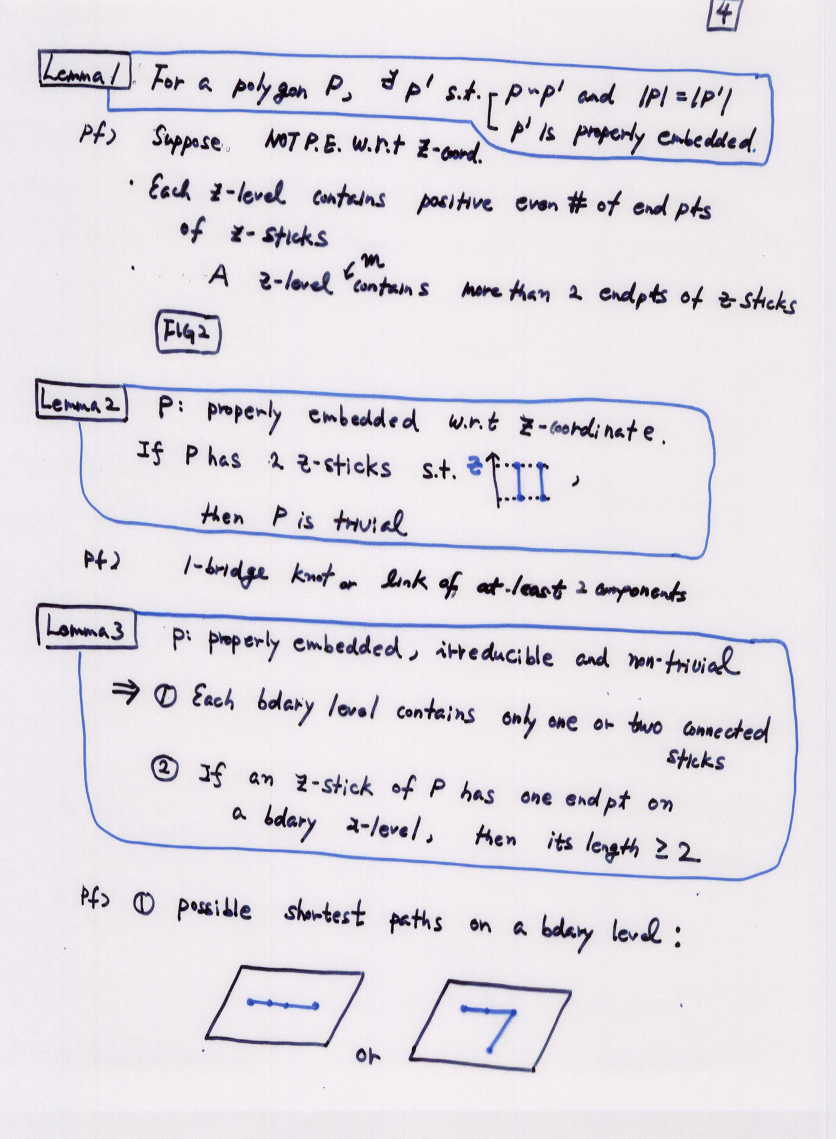 4
Lemma 1. For a polygon P, ∃ P' s.t. P~P' and |P|=|P'|
P' is properly embedded.
pf) Suppose. NOT P.E. w.r.t z-coord.
· Each z-level contains positive even # of end pts
of z-sticks
m
· A z-level contains more than 2 endpts of z-sticks
FIG2
Lemma 2 P: properly embedded w.r.t z-coordinate.
If P has 2 z-sticks s.t. z ,
then P is trivial
pf) 1-bridge knot or link of at-least 2 components
Lemma 3 P: properly embedded, irreducible and non-trivial
⇒ ① Each bdary level contains only one or two connected
sticks
② If an z-stick of P has one endpt on
a bdary z-level, then its length ≥ 2
pf) ① possible shortest paths on a bdary level :
or